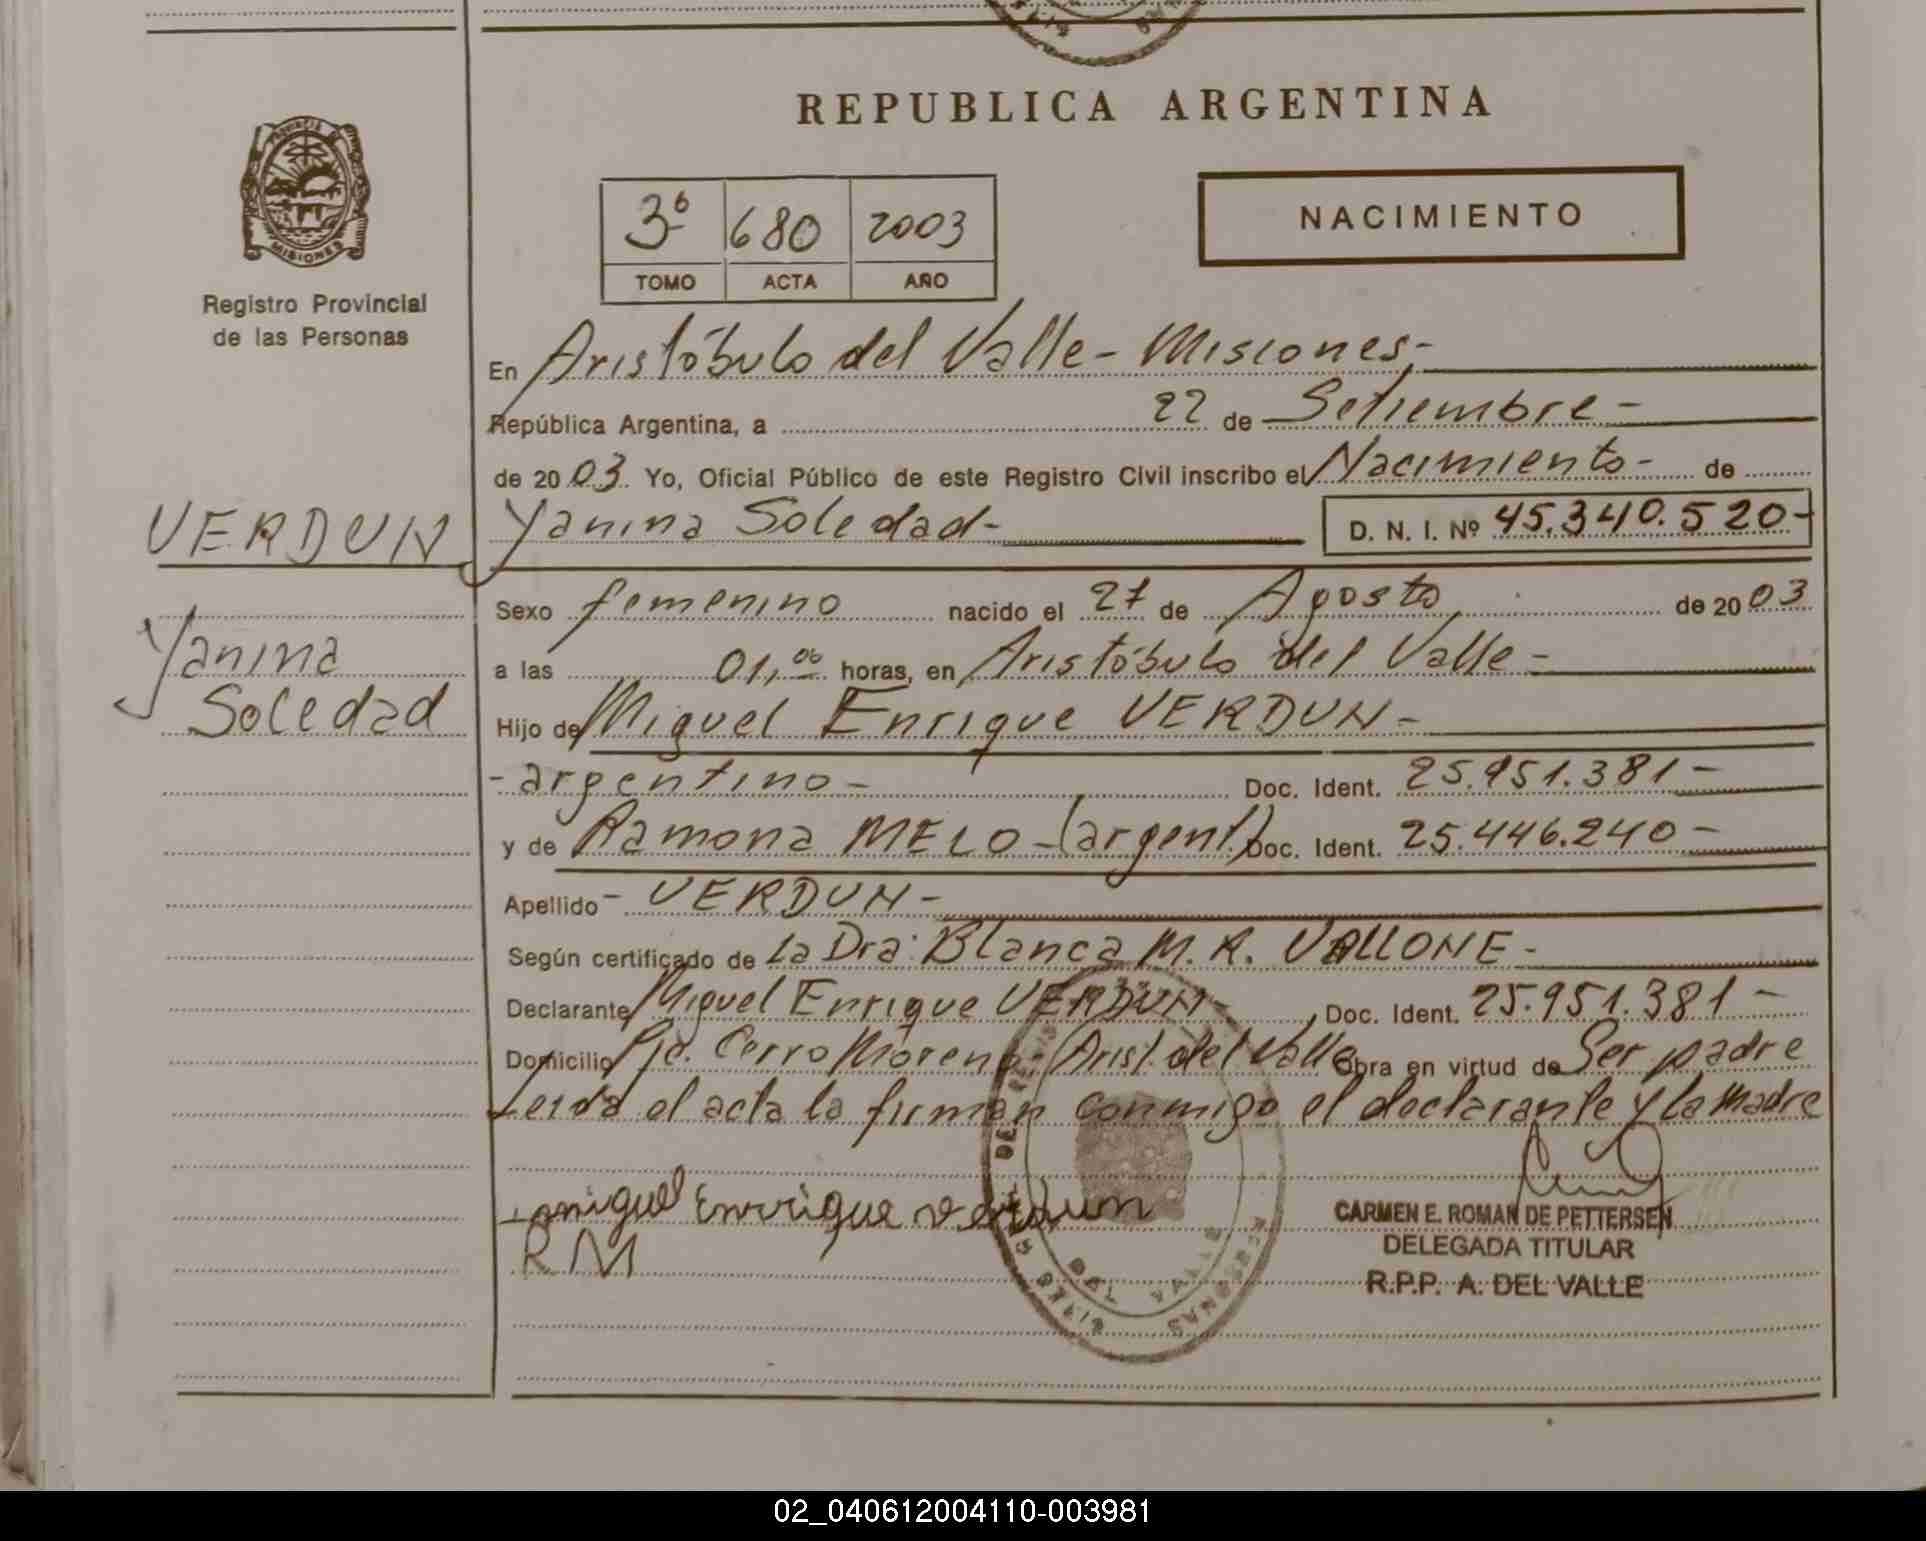 REPUBLICA ARGENTINA
MISIONES
Registro Provincial
de las Personas
3º 680 2003
TOMO ACTA AÑO
NACIMIENTO
En Aristóbulo del Valle - Misiones -
República Argentina, a 22 de Setiembre -
de 2003. Yo, Oficial Público de este Registro Civil inscribo el Nacimiento - de
VERDUN
Yanina Soledad
Yanina Soledad -
D. N. I. Nº 45.340.520-
Sexo femenino nacido el 27 de Agosto de 2003
a las 01,00 horas, en Aristóbulo del Valle -
Hijo de Miguel Enrique VERDUN -
- argentino - Doc. Ident. 25.951.381 -
y de Ramona MELO - (argent.) Doc. Ident. 25.446.240 -
Apellido - VERDUN -
Según certificado de La Dra. Blanca M. R. VALLONE -
Declarante Miguel Enrique VERDUN - Doc. Ident. 25.951.381 -
Domicilio Pje. Cerro Moreno - Arist. del Valle Obra en virtud de Ser padre
Leída el acta la firman conmigo el declarante y la madre
miguel Enrrique verdun
RM
CARMEN E. ROMAN DE PETTERSEN
DELEGADA TITULAR
R.P.P. A. DEL VALLE
DEL VALLE
PERSONAS
02_040612004110-003981